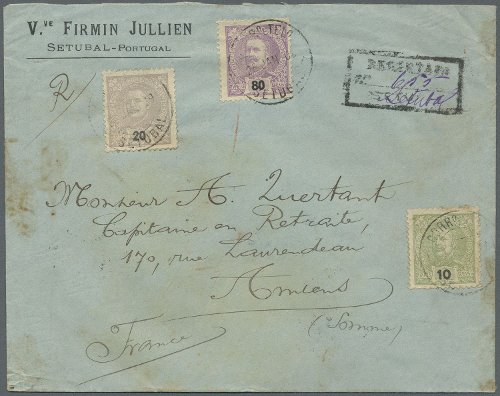 V.ve FIRMIN JULLIEN
SETUBAL-PORTUGAL
R
80
20
SETUBAL
655
Setubal
Monsieur A. Quertant
Capitaine en Retraite,
170, rue Laurendeau
Amiens
(Somme)
France
10